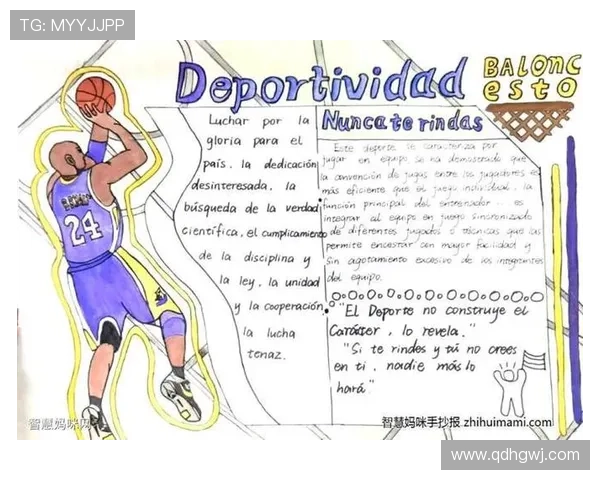 TG: MYYJJPP
Deportividad
BALONC
esto
Nunca te rindas
Luchar por la
gloria para el
país, la dedicación
desinteresada, la
búsqueda de la verdad
científica, el cumplicamiento
de la disciplina y
la ley, la unidad
y la cooperación,
la lucha
tenaz.
Este deporte se caracteriza por
jugar en equipo se ha demostrado que
la convención de jugas entre los jugadores es
más eficiente que el juego individual. la
función principal del entrenador .. es
integrar al equipo en juego sincronizado
de diferentes jugados o técnicas que las
permite encestar con mayor facilidad y
sin agotamiento excesivo de los integrantes
del equipo.
"EL Deporte no construye el
Carácter, lo revela."
"Si te rindes y tú no crees
en ti, nadie más lo
hará."
24
智慧妈咪网
智慧妈咪手抄报.zhihuimami.com
www.qdhgwj.com